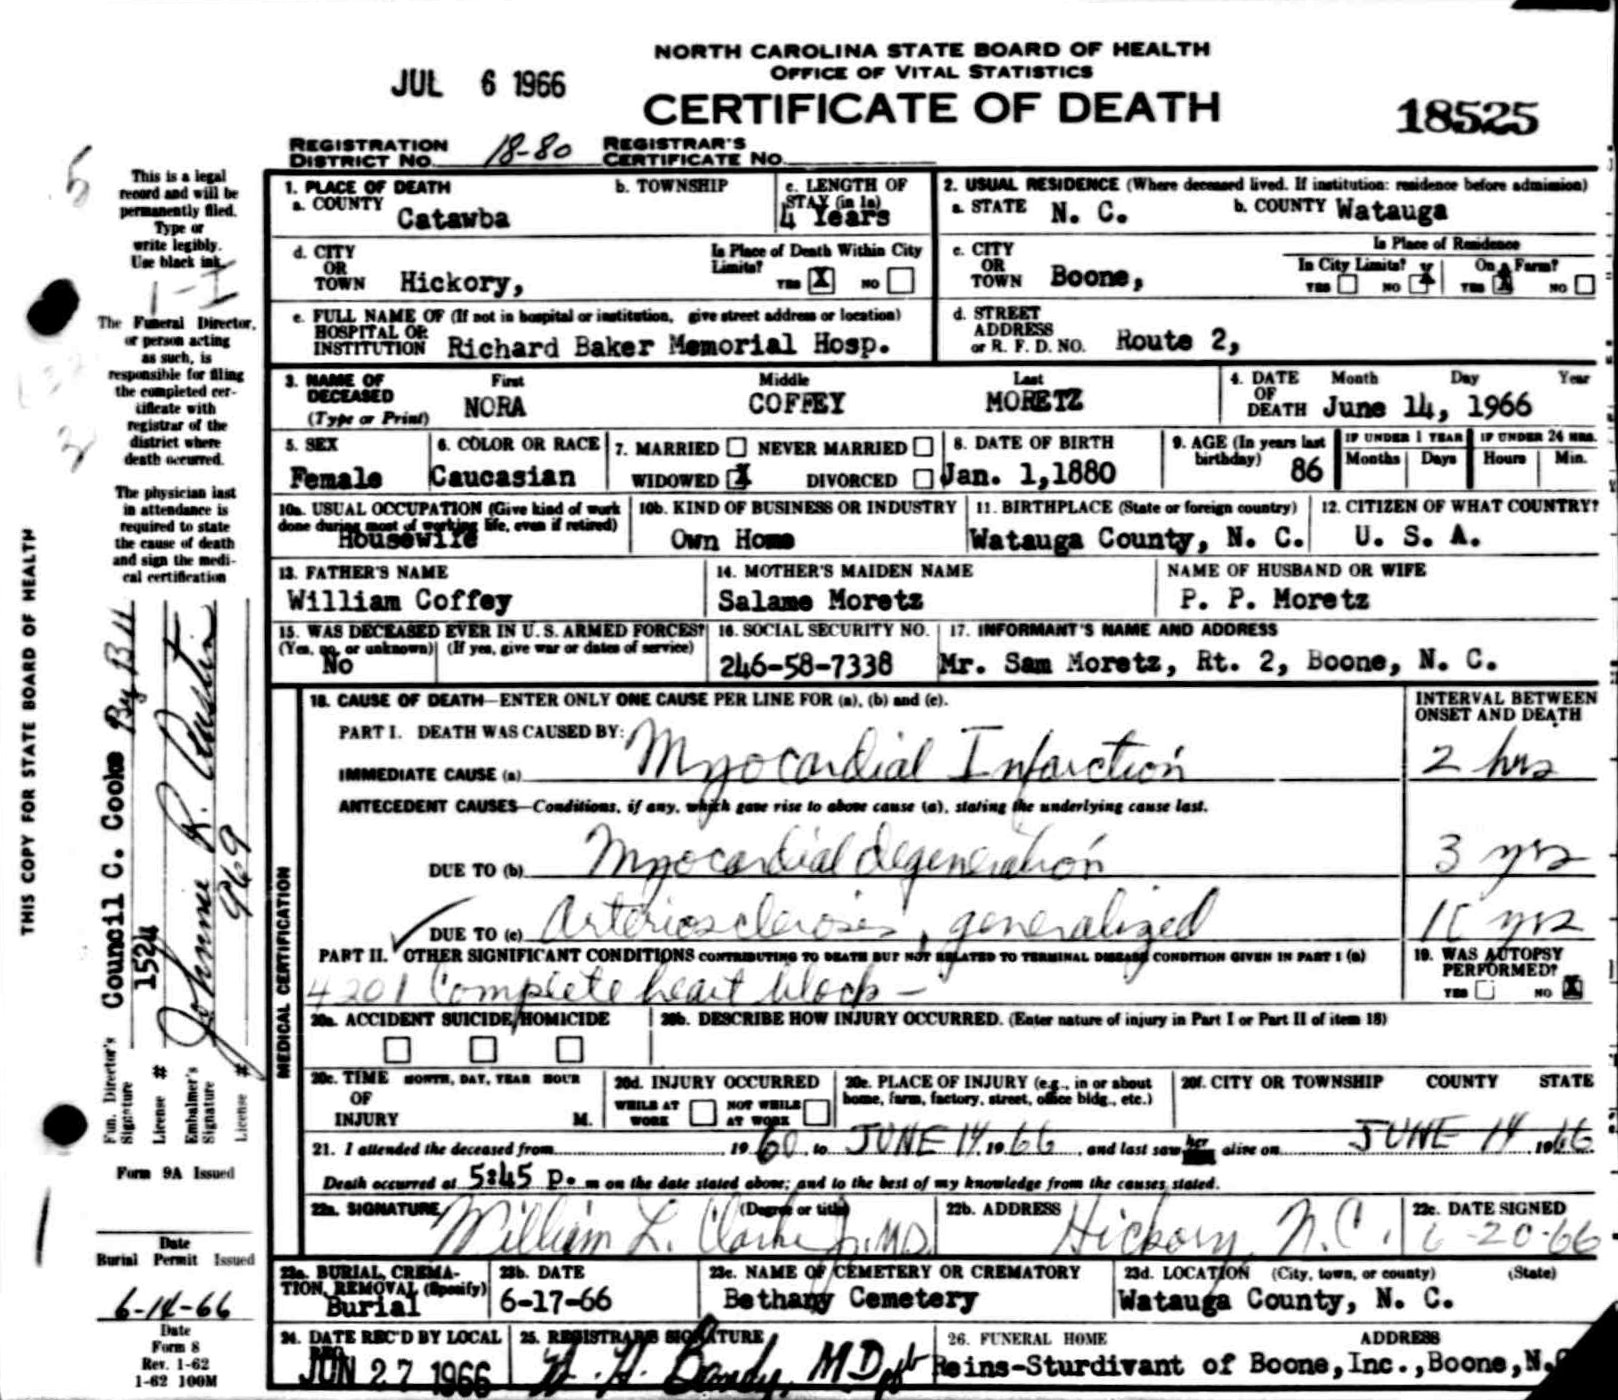 NORTH CAROLINA STATE BOARD OF HEALTH
OFFICE OF VITAL STATISTICS
JUL 6 1966
CERTIFICATE OF DEATH
18525
REGISTRATION DISTRICT NO. 18-80 REGISTRAR'S CERTIFICATE NO.
This is a legal
record and will be
permanently filed.
Type or
write legibly.
Use black ink.
The Funeral Director,
or person acting
as such, is
responsible for filing
the completed cer-
tificate with
registrar of the
district where
death occurred.
The physician last
in attendance is
required to state
the cause of death
and sign the medi-
cal certification
THIS COPY FOR STATE BOARD OF HEALTH
Council C. Cooke By BH
Fun. Director's Signature
1524
License #
Johnne R. Austin
Embalmer's Signature
969
License #
Form 9A Issued
Date
Burial Permit Issued
6-14-66
Date
Form 8
Rev. 1-62
1-62 100M
1. PLACE OF DEATH b. TOWNSHIP c. LENGTH OF STAY (in 1a)
a. COUNTY Catawba 4 Years
2. USUAL RESIDENCE (Where deceased lived. If institution: residence before admission)
a. STATE N. C. b. COUNTY Watauga
d. CITY OR TOWN Hickory, Is Place of Death Within City Limits? YES X NO
c. CITY OR TOWN Boone, Is Place of Residence In City Limits? YES NO X On A Farm? YES X NO
e. FULL NAME OF (If not in hospital or institution, give street address or location)
HOSPITAL OR INSTITUTION Richard Baker Memorial Hosp.
d. STREET ADDRESS or R. F. D. NO. Route 2,
3. NAME OF DECEASED (Type or Print) First Middle Last
NORA COFFEY MORETZ
4. DATE OF DEATH Month Day Year
June 14, 1966
5. SEX Female
6. COLOR OR RACE Caucasian
7. MARRIED NEVER MARRIED
WIDOWED X DIVORCED
8. DATE OF BIRTH Jan. 1,1880
9. AGE (In years last birthday) 86
IF UNDER 1 YEAR Months Days IF UNDER 24 HRS. Hours Min.
10a. USUAL OCCUPATION (Give kind of work done during most of working life, even if retired) Housewife
10b. KIND OF BUSINESS OR INDUSTRY Own Home
11. BIRTHPLACE (State or foreign country) Watauga County, N. C.
12. CITIZEN OF WHAT COUNTRY? U. S. A.
13. FATHER'S NAME William Coffey
14. MOTHER'S MAIDEN NAME Salame Moretz
NAME OF HUSBAND OR WIFE P. P. Moretz
15. WAS DECEASED EVER IN U. S. ARMED FORCES?
(Yes, no, or unknown) (If yes, give war or dates of service)
No
16. SOCIAL SECURITY NO. 246-58-7338
17. INFORMANT'S NAME AND ADDRESS Mr. Sam Moretz, Rt. 2, Boone, N. C.
MEDICAL CERTIFICATION
18. CAUSE OF DEATH—ENTER ONLY ONE CAUSE PER LINE FOR (a), (b) and (c).
INTERVAL BETWEEN ONSET AND DEATH
PART I. DEATH WAS CAUSED BY:
IMMEDIATE CAUSE (a) Myocardial Infarction 2 hrs
ANTECEDENT CAUSES—Conditions, if any, which gave rise to above cause (a), stating the underlying cause last.
DUE TO (b) Myocardial degeneration 3 yrs
DUE TO (c) Arteriosclerosis, generalized yrs
PART II. OTHER SIGNIFICANT CONDITIONS CONTRIBUTING TO DEATH BUT NOT RELATED TO TERMINAL DISEASE CONDITION GIVEN IN PART I (a)
4201 Complete heart block -
19. WAS AUTOPSY PERFORMED? YES NO X
20a. ACCIDENT SUICIDE HOMICIDE
20b. DESCRIBE HOW INJURY OCCURRED. (Enter nature of injury in Part I or Part II of item 18)
20c. TIME OF INJURY MONTH, DAY, YEAR HOUR M.
20d. INJURY OCCURRED WHILE AT WORK NOT WHILE AT WORK
20e. PLACE OF INJURY (e.g., in or about home, farm, factory, street, office bldg., etc.)
20f. CITY OR TOWNSHIP COUNTY STATE
21. I attended the deceased from 1960, to JUNE 14, 1966, and last saw her alive on JUNE 14 1966.
Death occurred at 5:45 P. m on the date stated above; and to the best of my knowledge from the causes stated.
22a. SIGNATURE (Degree or title) William L. Clarke Jr. M.D.
22b. ADDRESS Hickory, N.C.
22c. DATE SIGNED 6-20-66
23a. BURIAL, CREMATION, REMOVAL (Specify) Burial
23b. DATE 6-17-66
23c. NAME OF CEMETERY OR CREMATORY Bethany Cemetery
23d. LOCATION (City, town, or county) (State) Watauga County, N. C.
24. DATE REC'D BY LOCAL REG. JUN 27 1966
25. REGISTRAR'S SIGNATURE MD
26. FUNERAL HOME ADDRESS
Reins-Sturdivant of Boone,Inc.,Boone,N.C.